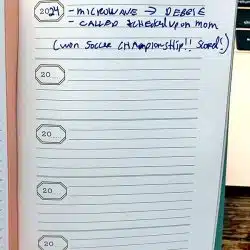 2024 - MICROWAVE → DEBBIE
- CALLED & CHECKED UP ON MOM
(WON SOCCER CHAMPIONSHIP!! SCORED!)
20
20
20
20